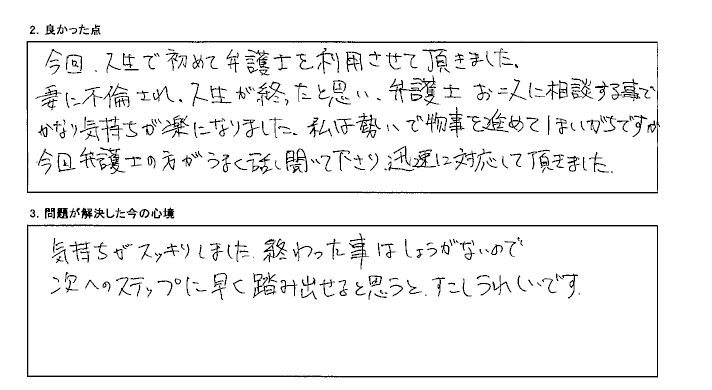 2. 良かった点
今回、人生で初めて弁護士を利用させて頂きました。
妻に不倫され、人生が終ったと思い、弁護士 お二人に相談する事で
かなり気持ちが楽になりました。私は勢いで物事を進めてしまいがちですが
今回弁護士の方がうまく話し聞いて下さり、迅速に対応して頂きました。
3. 問題が解決した今の心境
気持ちがスッキリしました。終わった事はしょうがないので
次へのステップに早く踏み出せると思うと、すこしうれしいです。